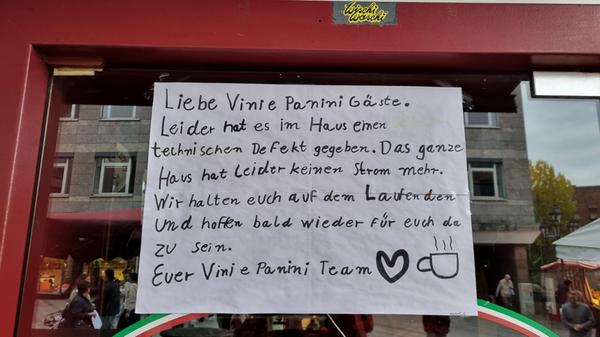 Wischi
Waschi
Liebe Vini e Panini Gäste.
Leider hat es im Haus einen
technischen Defekt gegeben. Das ganze
Haus hat leider keinen Strom mehr.
Wir halten euch auf dem Laufenden
und hoffen bald wieder für euch da
zu sein.
Euer Vini e Panini Team